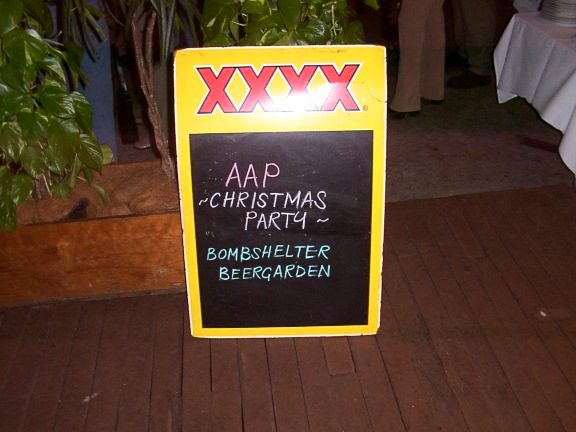 XXXX
AAP
~CHRISTMAS
PARTY~
BOMBSHELTER
BEERGARDEN